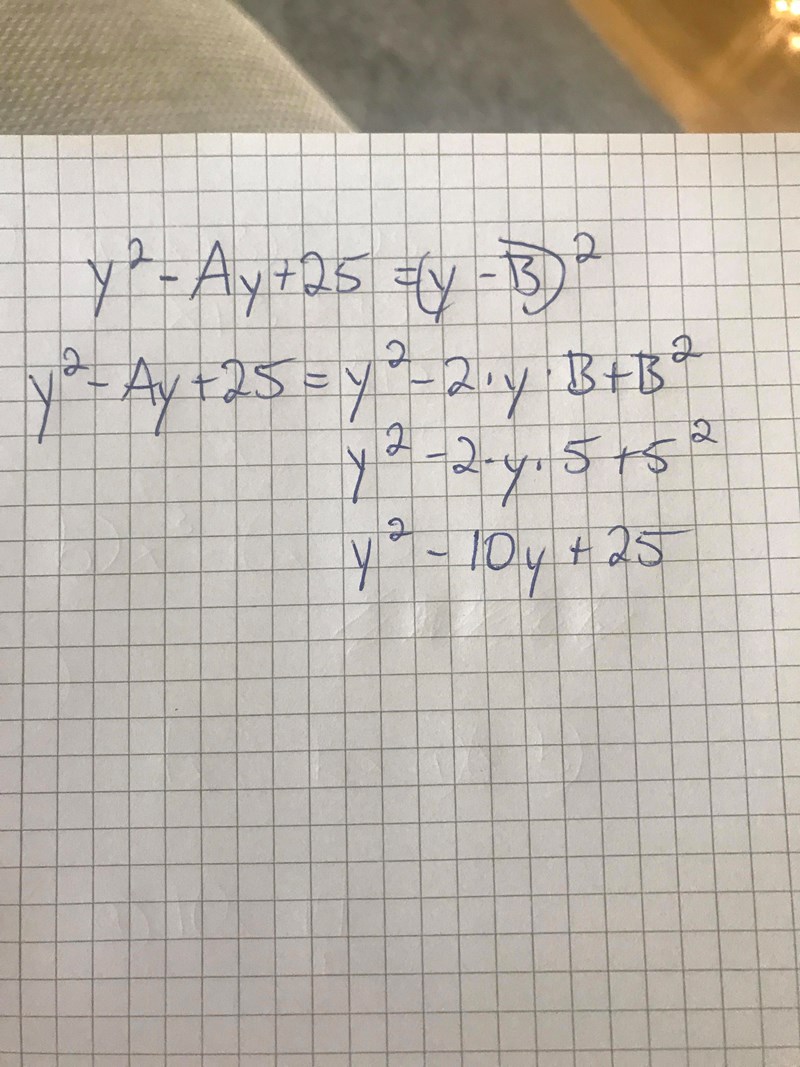 y² - Ay + 25 = (y - B)²
y² - Ay + 25 = y² - 2·y·B + B²
y² - 2·y·5 + 5²
y² - 10y + 25